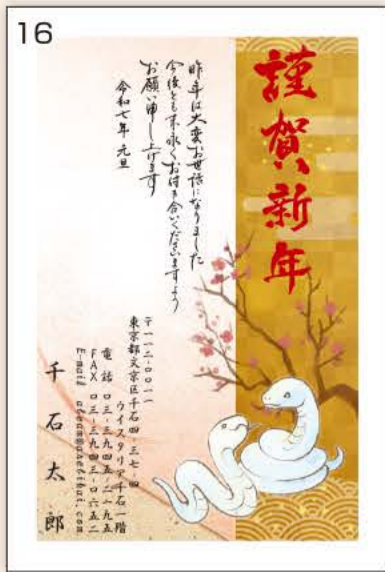 16
謹賀新年
昨年は大変お世話になりました
今後とも末永くお付き合いくださいますよう
お願い申し上げます
令和七年 元旦
〒一一二-〇〇一一
東京都文京区千石四-三七-四
ウイスタリア千石一階
電話 〇三-三九四五-二一九五
FAX 〇三-三九四三-〇六五二
E-mail
千石太郎